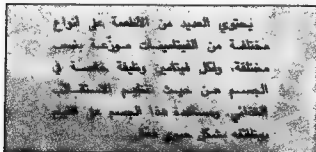 تحتوي العديد من الأطعمة على أنواع
مختلفة من الفيتامينات موزعة بنسب
مختلفة، ولكل فيتامين وظيفة خاصة في
الجسم من حيث تنظيم الاستقلاب
الغذائي ومساعدة هذا الجسم على القيام
بوظائفه بشكل صحيح